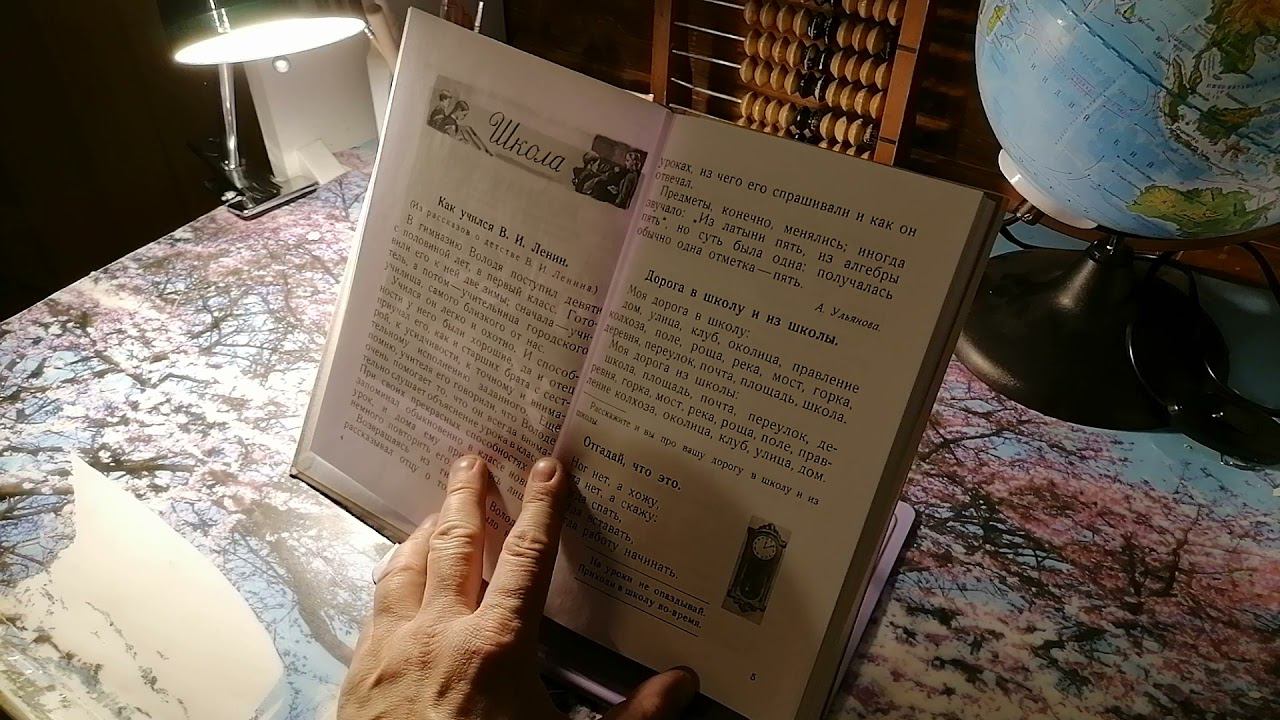 Школа
Как учился В. И. Ленин.
(Из рассказов о детстве В. И. Ленина.)
В гимназию Володя поступил девяти
с половиной лет, в первый класс. Гото-
вили его к ней две зимы; сначала — учи-
тель, а потом — учительница городского
училища, самого близкого от нас.
Учился он легко и охотно. И способ-
ности у него были хорошие, да и отец
приучал его, как и старших брата с сест-
рой, к усидчивости, к точному и внима-
тельному исполнению заданного. Ещё
помню, учителя его говорили, что Володе
очень помогает то, что он всегда внима-
тельно слушает объяснение урока в классе.
При своих прекрасных способностях он
запоминал обыкновенно в классе новый
урок, и дома ему
немного повторить его.
Возвращаясь из Володя
рассказывал отцу о
4
уроках, из чего его спрашивали и как он
отвечал.
Предметы, конечно, менялись; иногда
звучало: „Из латыни пять, из алгебры
пять“, но суть была одна: получалась
обычно одна отметка — пять.
А. Ульянова.
Дорога в школу и из школы.
Моя дорога в школу:
дом, улица, клуб, околица, правление
колхоза, поле, роща, река, мост, горка,
деревня, переулок, почта, площадь, школа.
Моя дорога из школы:
школа, площадь, почта, переулок, де-
ревня, горка, мост, река, роща, поле, прав-
ление колхоза, околица, клуб, улица, дом.
Расскажите и вы про вашу дорогу в школу и из
школы.
Отгадай, что это.
Ног нет, а хожу,
нет, а скажу:
спать,
вставать,
работу начинать.
На уроки не опаздывай.
Приходи в школу во-время.
5